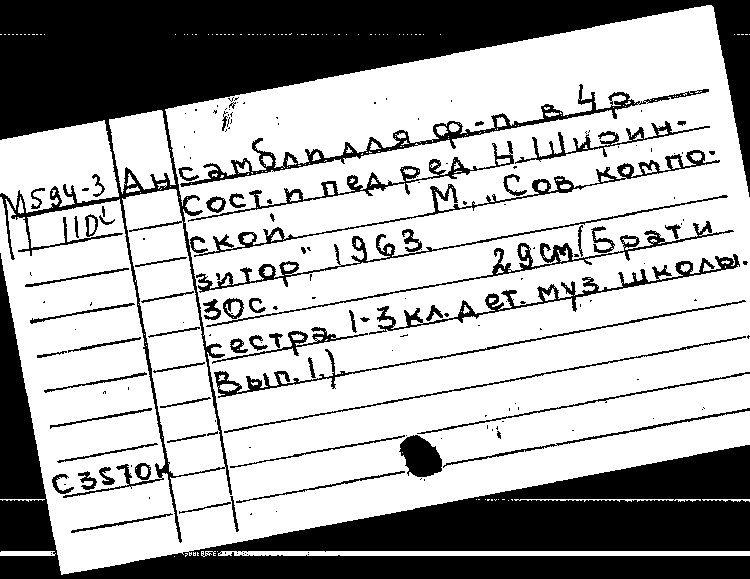 М594-3
11D
Ансамбли для ф.-п. в 4 р.
Сост. и пед. ред. Н. Ширин-
ской. М., „Сов. компо-
зитор", 1963.
30с. 29 см. (Брат и
сестра. 1-3 кл. дет. муз. школы.
Вып. 1.).
С3570К